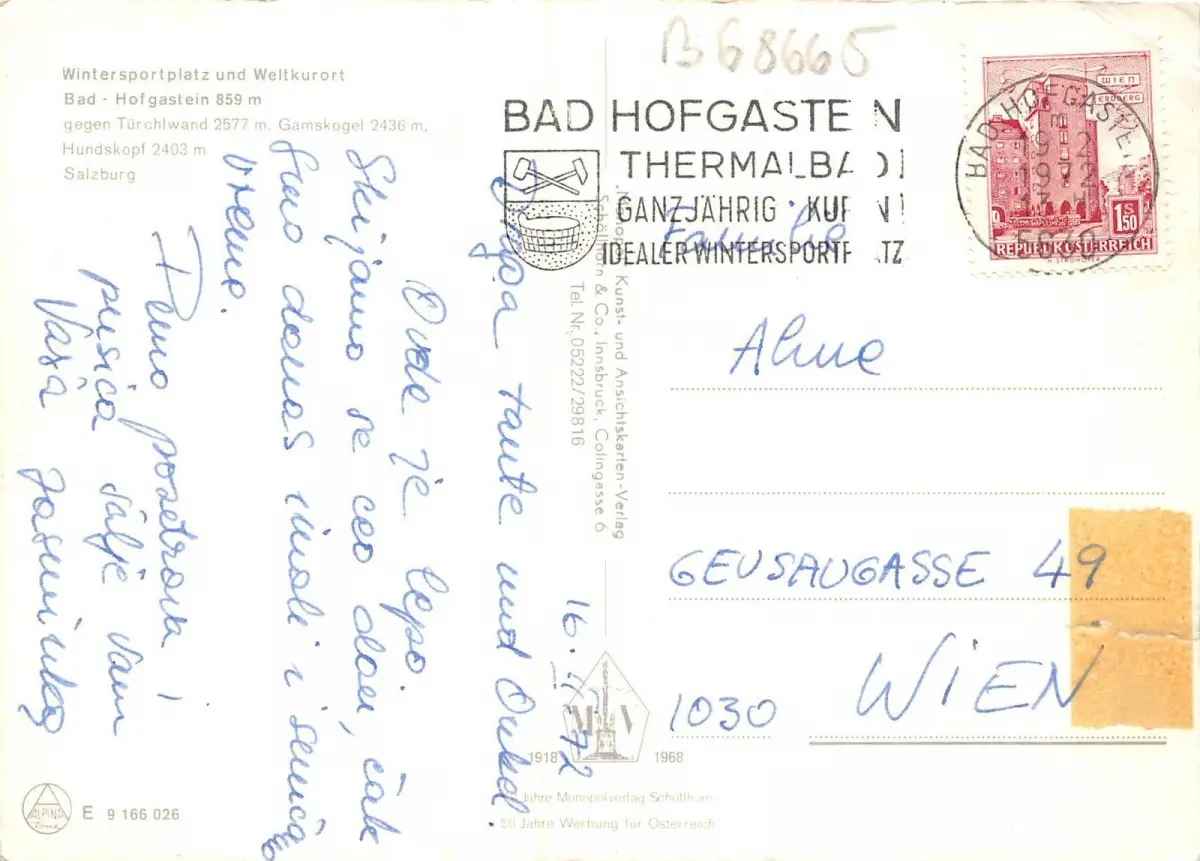 Wintersportplatz und Weltkurort
Bad - Hofgastein 859 m
gegen Türchlwand 2577 m, Gamskogel 2436 m,
Hundskopf 2403 m
Salzburg
16. 72
Draga tante und Onkel.
Ovde je lepo.
Skijamo se ceo dan, čak
smo danas imali i
vreme.
Puno pozdrava i
pusica šalje vam
Vaša Jasminka
E 9 166 026
ALPINA
Druck
Kunst- und Ansichtskarten-Verlag
Schöllhorn & Co., Innsbruck, Colingasse 6
Tel. Nr. 05222/29816
M V
1918 1968
Jahre Monopolverlag Schöllhorn
50 Jahre Werbung für Österreich
B68665
BAD HOFGASTEIN
THERMALBAD
GANZJÄHRIG KUR
IDEALER WINTERSPORTPLATZ
BAD HOFGASTEIN
1972
5630
WIEN
ERDBERG
S 1.50
REPUBLIK ÖSTERREICH
Familie
Alme
GEUSAUGASSE 49
1030 WIEN